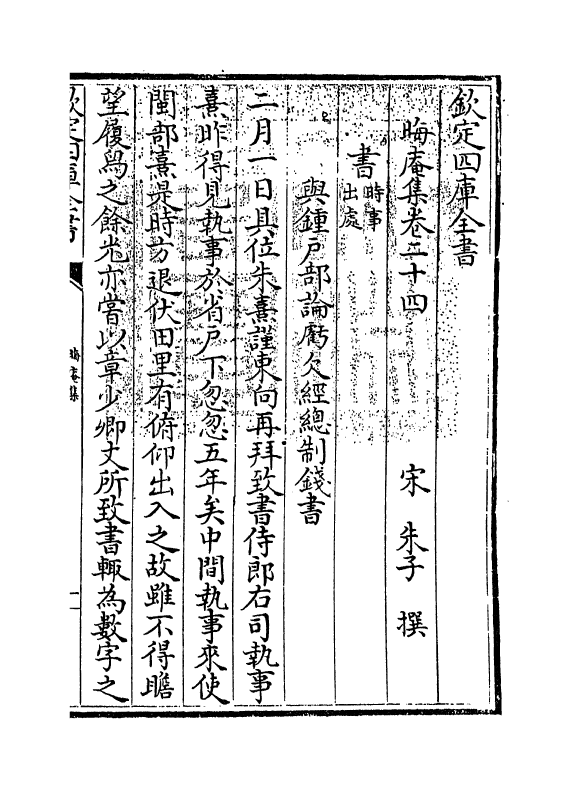 欽定四庫全書
晦庵集卷二十四　宋　朱子　撰
書時事出處
與鍾戸部論虧欠經總制錢書
二月一日具位朱熹謹東向再拜致書侍郎右司執事
熹昨得見執事於省戸下忽忽五年矣中間執事來使
閩部熹是時方退伏田里有俯仰出入之故雖不得瞻
望履舄之餘光亦嘗以章少卿丈所致書輙為數字之
欽定四庫全書
晦庵集
一